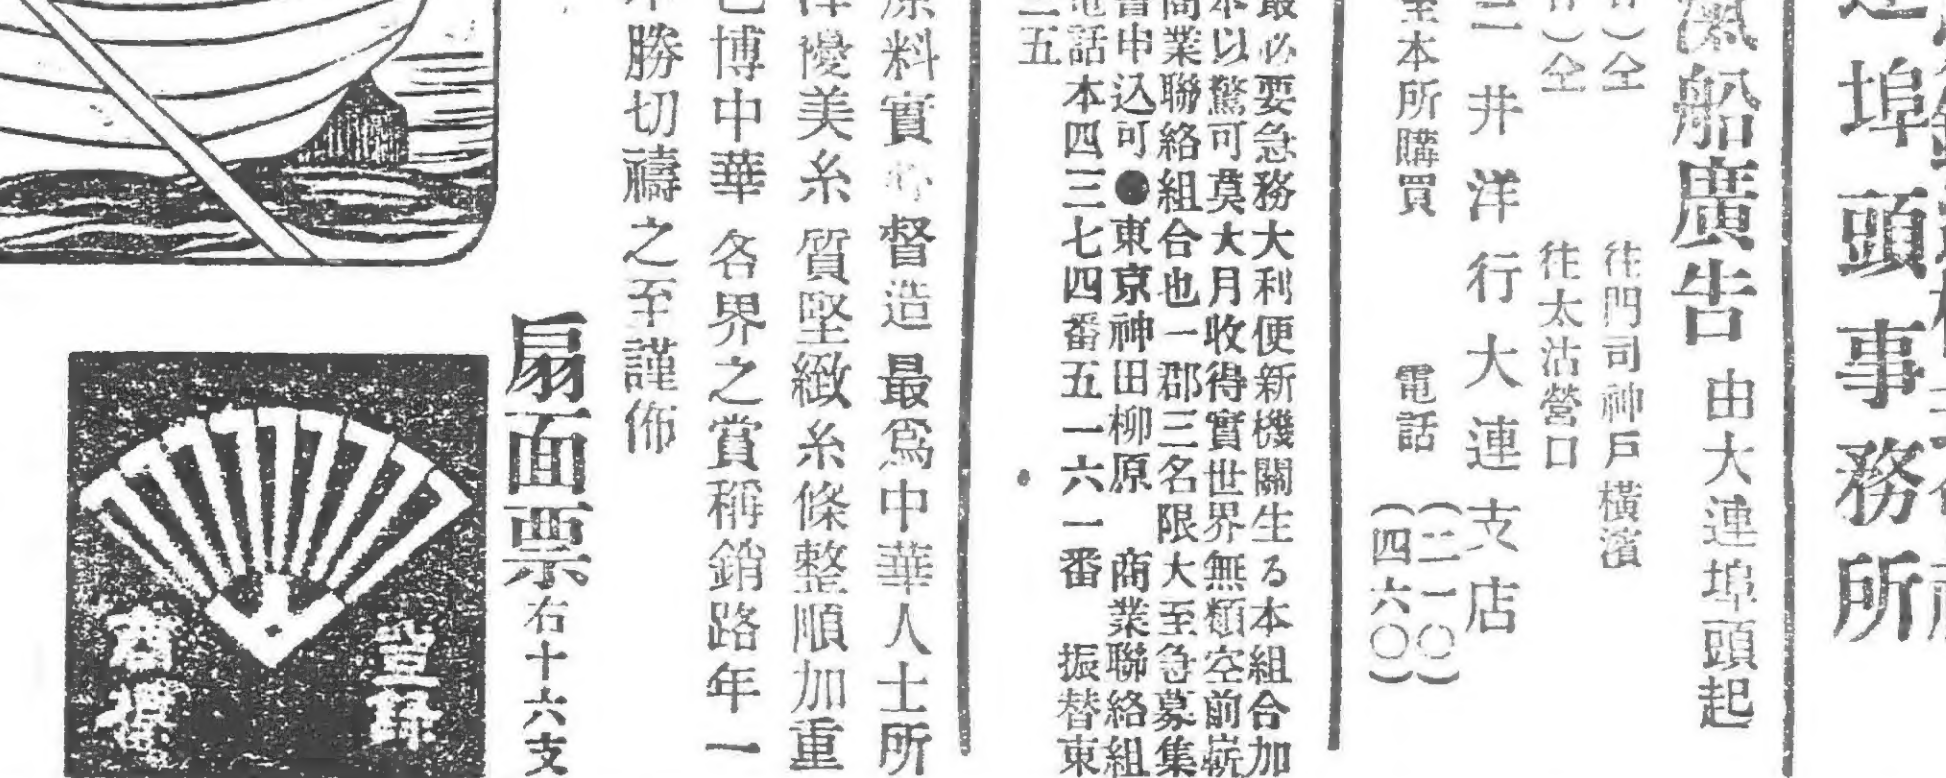 埠頭事務所
船廣告 由大連埠頭起
仝 往門司神戶橫濱
仝 往太沽營口
三井洋行大連支店
(二一〇)
本所購買 電話 (四六〇)
最必要急務大利便新機關生る本組合加
本以驚可莫大月收得實世界無類空前嶄
商業聯絡組合也一郡三名限大至急募集
書申込可●東京神田柳原 商業聯絡組
電話本四三七四番五一六一番 振替東
三五
原料實 督造最爲中華人士所
澤優美糸質堅緻糸條整順加重
博中華各界之賞稱銷路年一
勝切禱之至謹佈
扇面票右十六支
商標